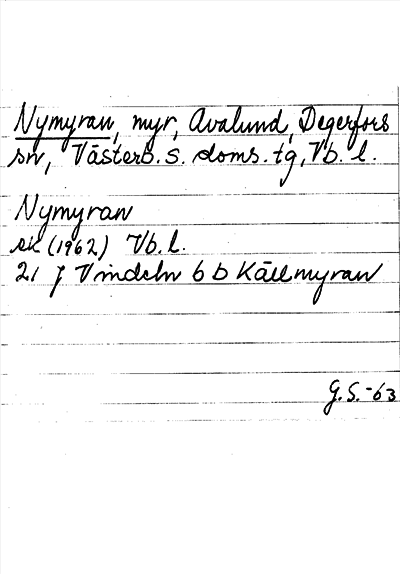 Nymyran, myr, Avalund, Degerfors
sn, Västerb. s. doms. tg, Vb. l.
Nymyran
ek (1962) Vb. l.
21 J Vindeln 6 b Källmyran
G. S. -63